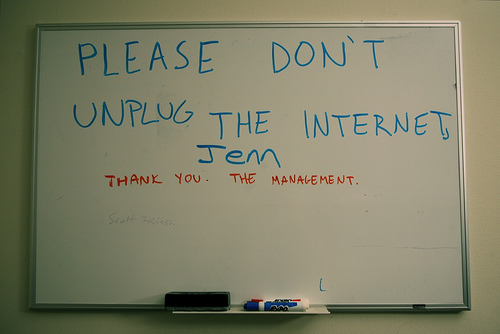 PLEASE DON'T
UNPLUG THE INTERNET,
Jenn
THANK YOU. THE MANAGEMENT.
Scott